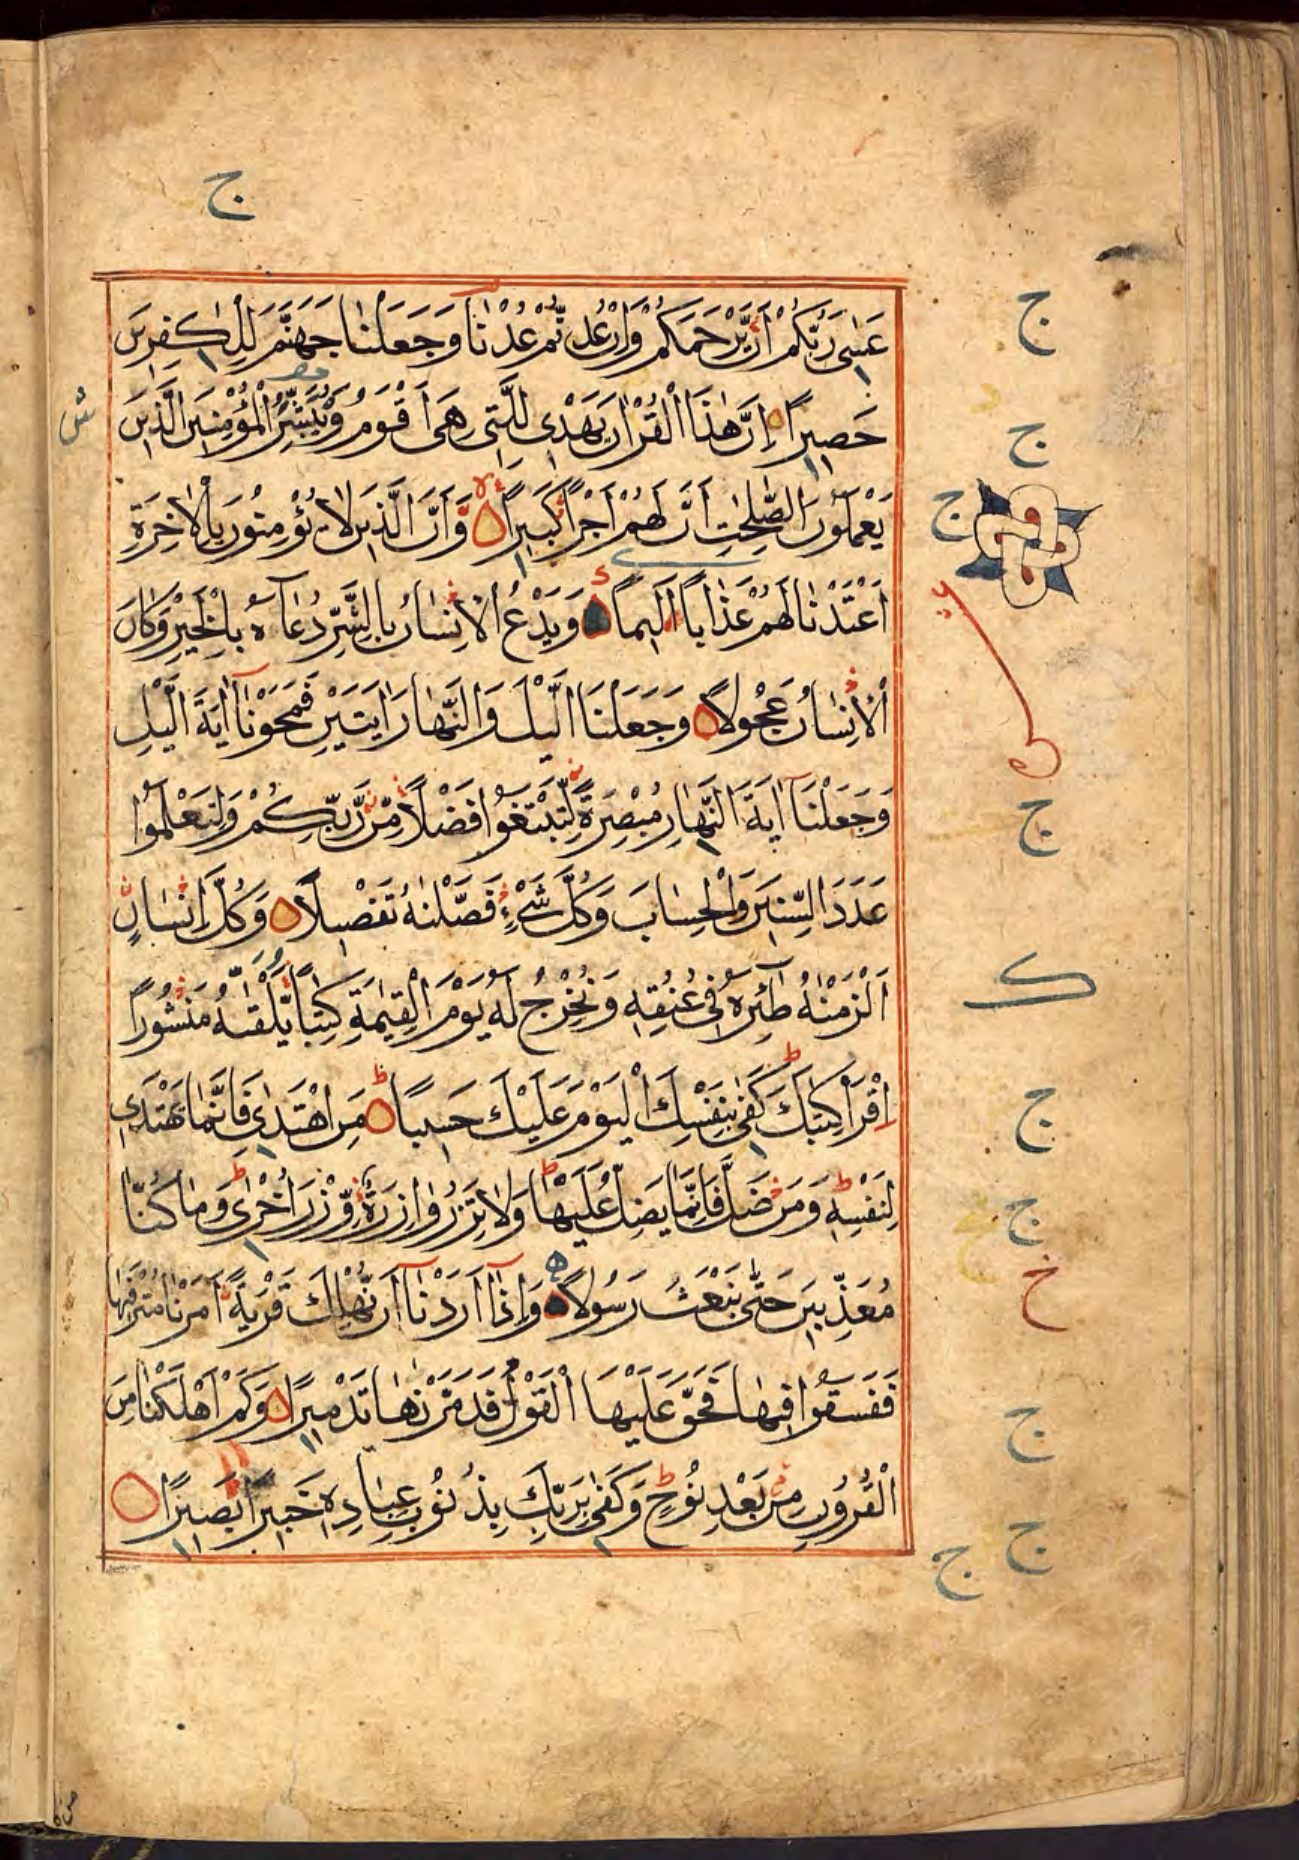 ج
عَسٰى رَبُّكُمْ اَنْ يَّرْحَمَكُمْ وَاِنْ عُدْتُّمْ عُدْنَا وَجَعَلْنَا جَهَنَّمَ لِلْكٰفِرِيْنَ
حَصِيْرًا اِنَّ هٰذَا الْقُرْاٰنَ يَهْدِى لِلَّتِى هِىَ اَقْوَمُ وَيُبَشِّرُ الْمُؤْمِنِيْنَ الَّذِيْنَ
يَعْمَلُوْنَ الصّٰلِحٰتِ اَنَّ لَهُمْ اَجْرًا كَبِيْرًا وَّاَنَّ الَّذِيْنَ لَا يُؤْمِنُوْنَ بِالْاٰخِرَةِ
اَعْتَدْنَا لَهُمْ عَذَابًا اَلِيْمًا وَيَدْعُ الْاِنْسَانُ بِالشَّرِّ دُعَآءَهٗ بِالْخَيْرِ وَكَانَ
الْاِنْسَانُ عَجُوْلًا وَجَعَلْنَا الَّيْلَ وَالنَّهَارَ اٰيَتَيْنِ فَمَحَوْنَآ اٰيَةَ الَّيْلِ
وَجَعَلْنَآ اٰيَةَ النَّهَارِ مُبْصِرَةً لِّتَبْتَغُوْا فَضْلًا مِّنْ رَّبِّكُمْ وَلِتَعْلَمُوْا
عَدَدَ السِّنِيْنَ وَالْحِسَابَ وَكُلَّ شَىْءٍ فَصَّلْنٰهُ تَفْصِيْلًا وَكُلَّ اِنْسَانٍ
اَلْزَمْنٰهُ طٰٓئِرَهٗ فِى عُنُقِهٖ وَنُخْرِجُ لَهٗ يَوْمَ الْقِيٰمَةِ كِتٰبًا يَّلْقٰىهُ مَنْشُوْرًا
اِقْرَاْ كِتٰبَكَ كَفٰى بِنَفْسِكَ الْيَوْمَ عَلَيْكَ حَسِيْبًا مَنِ اهْتَدٰى فَاِنَّمَا يَهْتَدِى
لِنَفْسِهٖ وَمَنْ ضَلَّ فَاِنَّمَا يَضِلُّ عَلَيْهَا وَلَا تَزِرُ وَازِرَةٌ وِّزْرَ اُخْرٰى وَمَا كُنَّا
مُعَذِّبِيْنَ حَتّٰى نَبْعَثَ رَسُوْلًا وَاِذَآ اَرَدْنَآ اَنْ نُّهْلِكَ قَرْيَةً اَمَرْنَا مُتْرَفِيْهَا
فَفَسَقُوْا فِيْهَا فَحَقَّ عَلَيْهَا الْقَوْلُ فَدَمَّرْنٰهَا تَدْمِيْرًا وَكَمْ اَهْلَكْنَا مِنَ
الْقُرُوْنِ مِنْ بَعْدِ نُوْحٍ وَكَفٰى بِرَبِّكَ بِذُنُوْبِ عِبَادِهٖ خَبِيْرًا بَصِيْرًا
ج
ج
ج
ج
ك
ج
ج
خ
ج
ج
ج